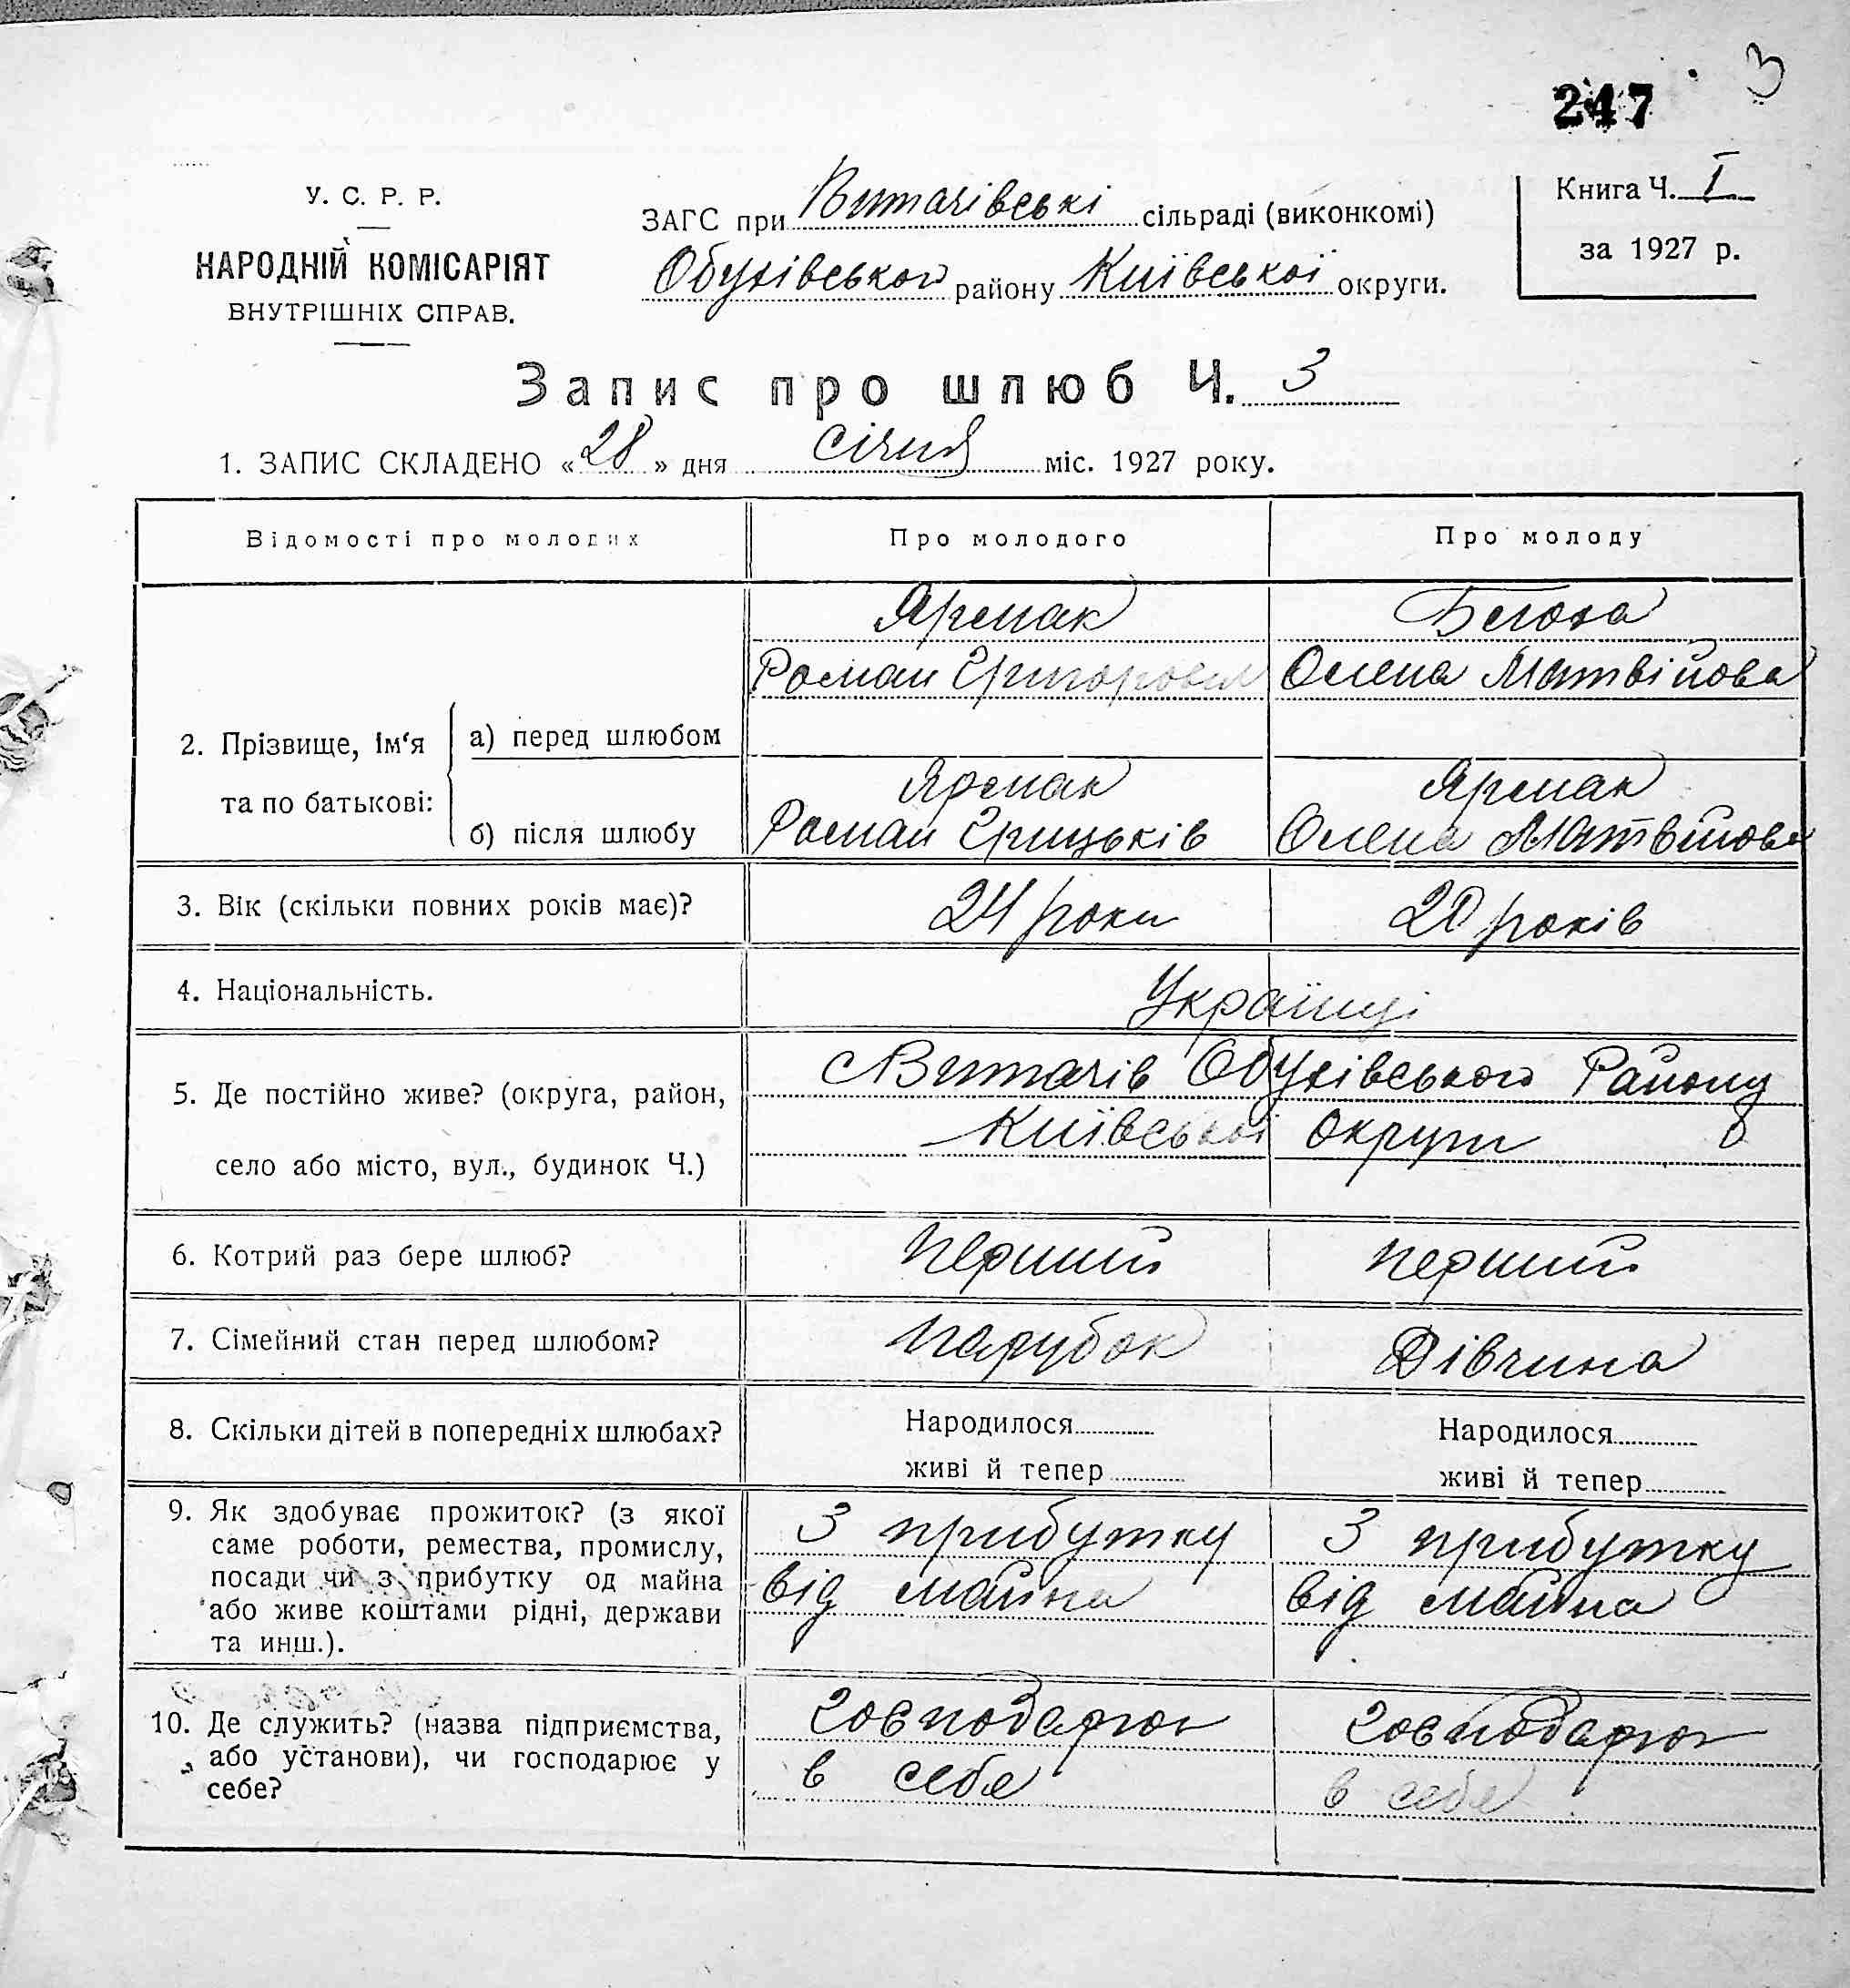 3
247
У. С. Р. Р.
НАРОДНІЙ КОМІСАРІЯТ
ВНУТРІШНІХ СПРАВ.
ЗАГС при Витачівські сільраді (виконкомі)
Обухівського району Київської округи.
Книга Ч. I
за 1927 р.
Запис про шлюб Ч. 3
1. ЗАПИС СКЛАДЕНО «28» дня січня міс. 1927 року.
Відомості про молодих
Про молодого
Про молоду
2. Прізвище, ім‘я та по батькові:
а) перед шлюбом
Ярмак
Роман Григорович
Олена Матвійова
б) після шлюбу
Ярмак
Роман Грицьків
Ярмак
Олена Матвійова
3. Вік (скільки повних років має)?
24 роки
20 років
4. Національність.
Українці
5. Де постійно живе? (округа, район,
село або місто, вул., будинок Ч.)
с Витачів Обухівського Району
Київської округи
6. Котрий раз бере шлюб?
перший
перший
7. Сімейний стан перед шлюбом?
парубок
Дівчина
8. Скільки дітей в попередніх шлюбах?
Народилося
живі й тепер
Народилося
живі й тепер
9. Як здобуває прожиток? (з якої
саме роботи, ремества, промислу,
посади чи з прибутку од майна
або живе коштами рідні, держави
та инш.).
З прибутку
від майна
З прибутку
від майна
10. Де служить? (назва підприємства,
або установи), чи господарює у
себе?
господарює
в себе
господарює
в себе